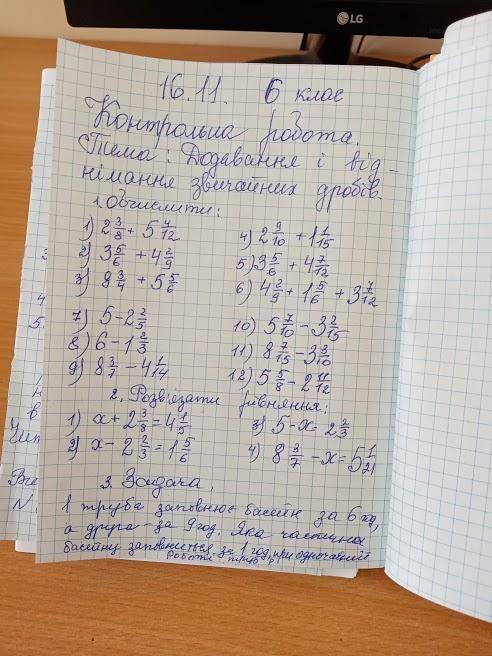 LG
16.11. 6 клас
Контрольна робота.
Тема: Додавання і від-
німання звичайних дробів.
1. Обчислити:
1) 2 3/8 + 5 7/12
4) 2 9/10 + 1 1/15
2) 3 5/6 + 4 2/9
5) 3 5/6 + 4 7/12
3) 8 3/4 + 5 5/6
6) 4 2/9 + 1 5/6 + 3 7/12
7) 5 - 2 2/5
10) 5 7/10 - 3 2/15
8) 6 - 1 2/3
11) 8 7/15 - 3 3/10
9) 8 3/7 - 4 1/14
12) 5 5/8 - 2 11/12
2. Розв'язати рівняння:
1) x + 2 3/8 = 4 1/5
3) 5 - x = 2 2/3
2) x - 2 2/3 = 1 5/6
4) 8 3/7 - x = 5 1/21
3. Задача.
1 труба заповнює басейн за 6 год,
а друга - за 9 год. Яка частина
басейну заповниться за 1 год, при одночасній
роботі труб